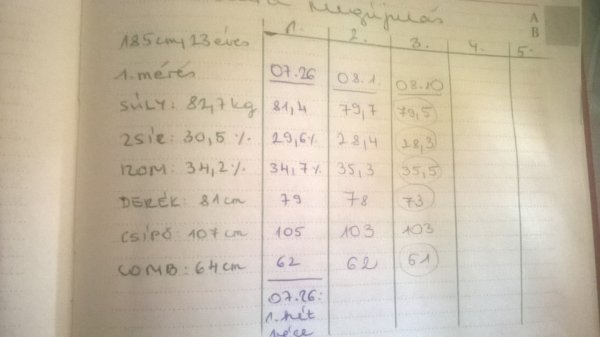 Megújulás
A
B
185cm, 23 éves 1. 2. 3. 4. 5.
1. mérés 07.26 08.1. 08.10
SÚLY: 82,7 kg 81,4 79,7 79,5
ZSÍR: 30,5 % 29,6% 28,4 28,3
IZOM: 34,2 % 34,7% 35,3 35,5
DERÉK: 81 cm 79 78 73
CSÍPŐ: 107 cm 105 103 103
COMB: 64 cm 62 62 61
07.26:
1. hét